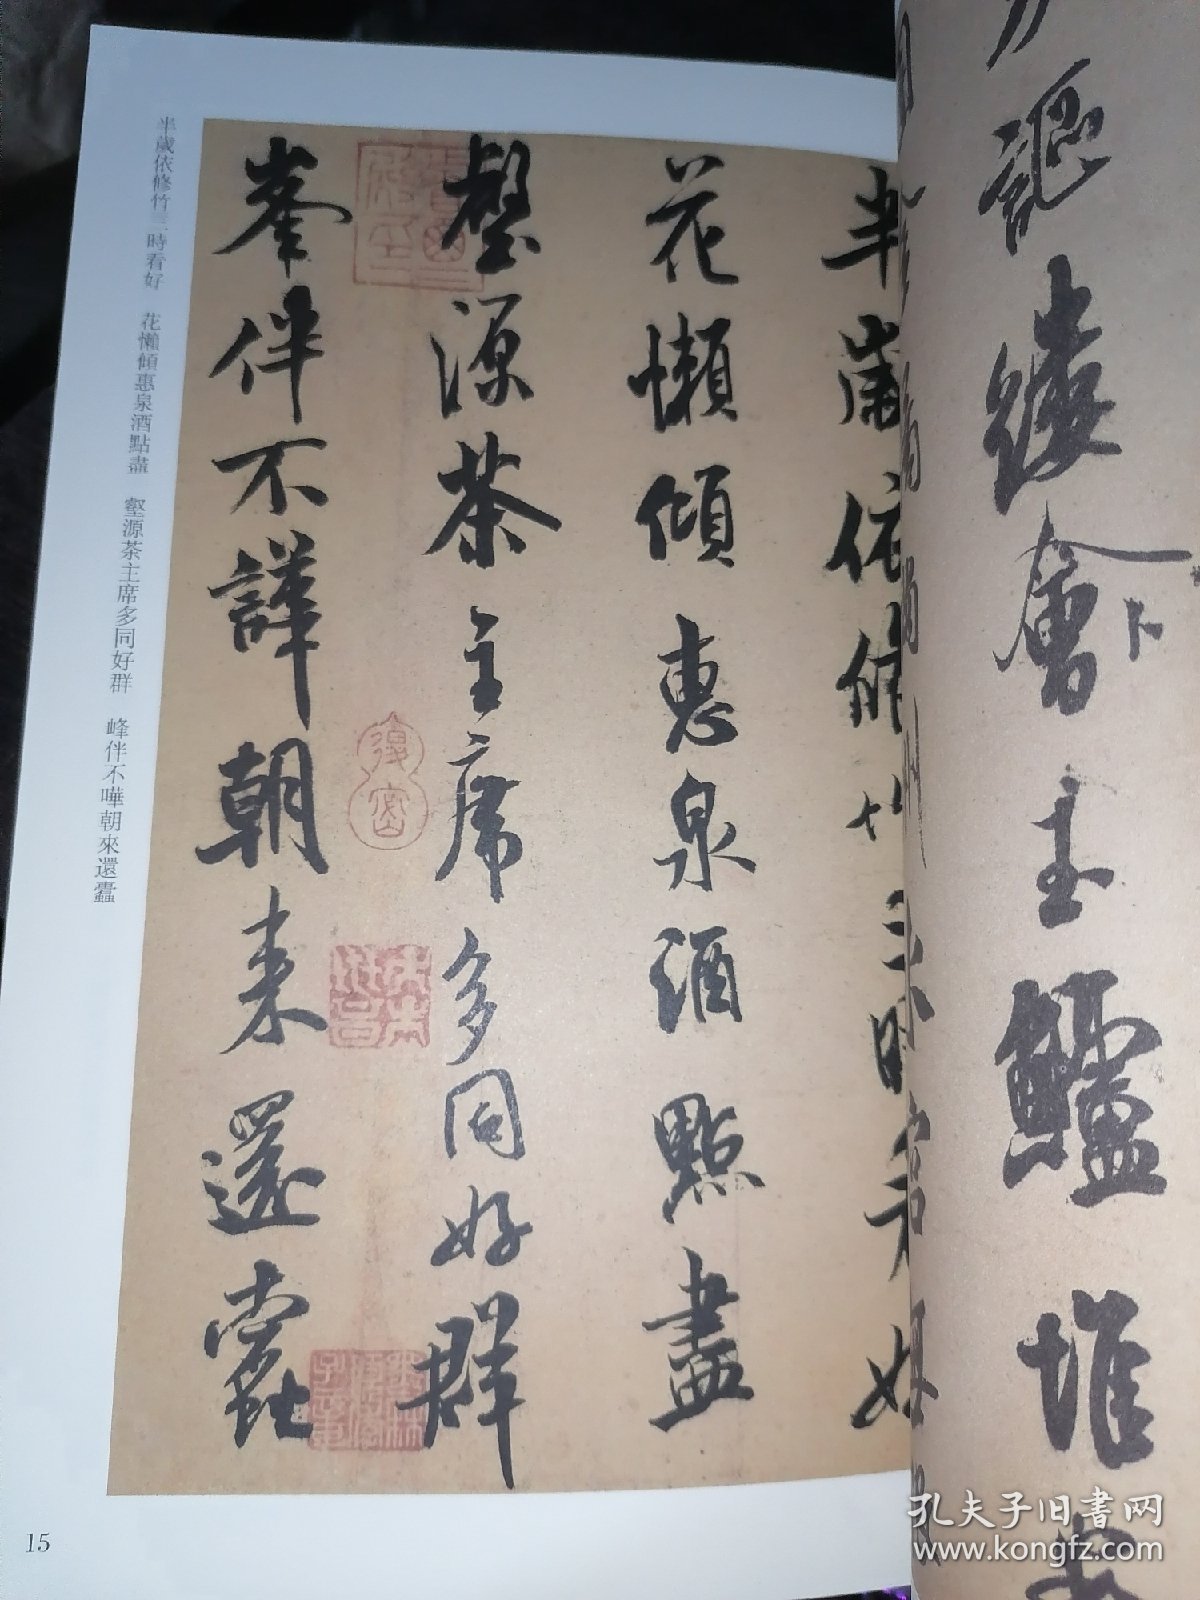 謳 緩 會 主 鱸 堆
卜
半歲依修竹三時看好
花懶傾惠泉酒點盡
壑源茶主席多同好群
峯伴不譁朝来還蠹
復
半歲依修竹三時看好 花懶傾惠泉酒點盡 壑源茶主席多同好群 峰伴不嘩朝來還蠹
15
孔夫子旧书网
www.kongfz.com